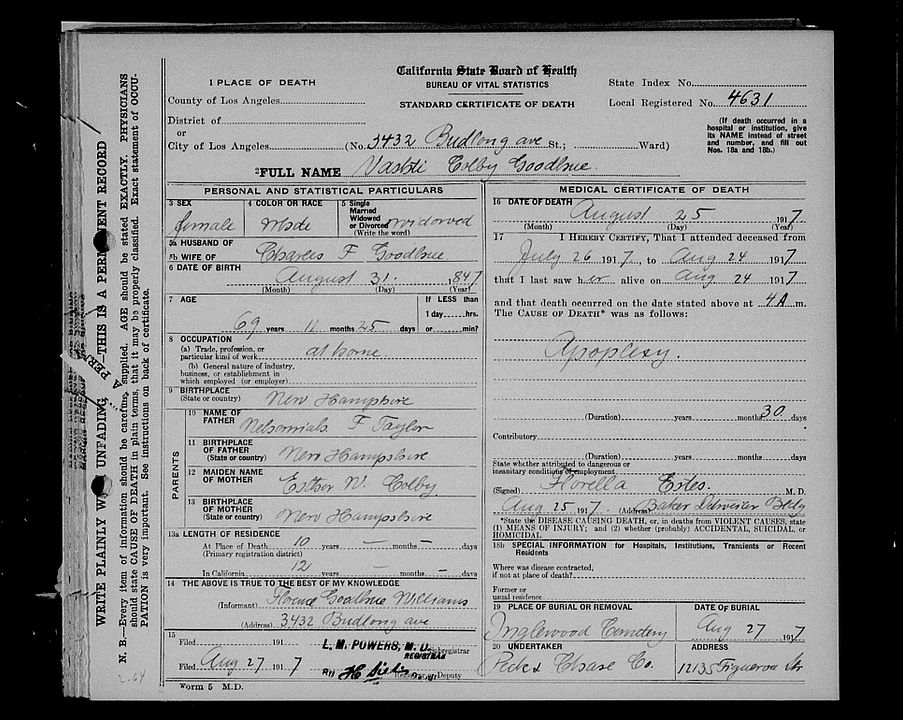 California State Board of Health
BUREAU OF VITAL STATISTICS
STANDARD CERTIFICATE OF DEATH
1 PLACE OF DEATH
County of Los Angeles
District of
or
City of Los Angeles (No. 3432 Budlong ave St.; Ward)
State Index No.
Local Registered No. 4631
(If death occurred in a
hospital or institution, give
its NAME instead of street
and number, and fill out
Nos. 18a and 18b.)
2 FULL NAME Vashti Colby Goodhue
PERSONAL AND STATISTICAL PARTICULARS
3 SEX female
4 COLOR OR RACE white
5 Single
Married
Widowed
or Divorced widowed
(Write the word)
5a HUSBAND OF
5b WIFE OF Charles F Goodhue
6 DATE OF BIRTH
August 31 1847
(Month) (Day) (Year)
7 AGE
69 years 11 months 25 days
If LESS than
1 day hrs.
or min?
8 OCCUPATION
(a) Trade, profession, or
particular kind of work at home
(b) General nature of industry,
business, or establishment in
which employed (or employer)
9 BIRTHPLACE
(State or country) New Hampshire
PARENTS
10 NAME OF
FATHER F Taylor
11 BIRTHPLACE
OF FATHER
(State or country) New Hampshire
12 MAIDEN NAME
OF MOTHER Esther W. Colby
13 BIRTHPLACE
OF MOTHER
(State or country) New Hampshire
13a LENGTH OF RESIDENCE
At Place of Death 10 years — months — days
(Primary registration district)
In California 12 years — months — days
14 THE ABOVE IS TRUE TO THE BEST OF MY KNOWLEDGE
(Informant) Florence Goodhue Williams
(Address) 3432 Budlong ave
15
Filed 191 L. M. POWERS, M. D. Subregistrar
REGISTRAR
Filed Aug 27 1917 By Registrar or Deputy
Worm 5 M.D.
MEDICAL CERTIFICATE OF DEATH
16 DATE OF DEATH
August 25 1917
(Month) (Day) (Year)
17 I HEREBY CERTIFY, That I attended deceased from
July 26 1917, to Aug 24 1917
that I last saw her alive on Aug 24 1917
and that death occurred on the date stated above at 4 A m.
The CAUSE OF DEATH* was as follows:
Apoplexy.
(Duration) years months 30 days
Contributory
(Duration) years months days
State whether attributed to dangerous or
insanitary conditions of employment
(Signed) Florella Estes. M. D.
Aug 25, 1917. (Address) Baker Detwiler Bldg
*State the DISEASE CAUSING DEATH, or, in deaths from VIOLENT CAUSES, state
(1) MEANS OF INJURY; and (2) whether (probably) ACCIDENTAL, SUICIDAL, or
HOMICIDAL.
18b SPECIAL INFORMATION for Hospitals, Institutions, Transients or Recent
Residents
Where was disease contracted,
if not at place of death?
Former or
usual residence
19 PLACE OF BURIAL OR REMOVAL
Inglewood Cemetery
DATE OF BURIAL
Aug 27 1917
20 UNDERTAKER
Peck & Chase Co.
ADDRESS
Figueroa St
WRITE PLAINLY UNFADING —THIS IS A PERMANENT RECORD
N. B.—Every item of information should be carefully supplied. AGE should be stated EXACTLY. PHYSICIANS
should state CAUSE OF DEATH in plain terms, that it may be properly classified. Exact statement of OCCU-
PATION is very important. See instructions on back of certificate.